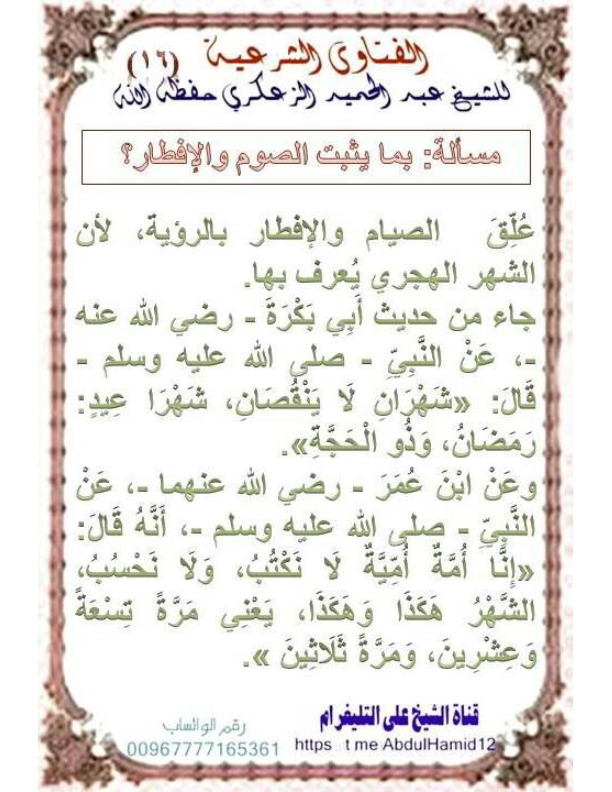 الفتاوى الشرعية (١٦)
للشيخ عبد الحميد الزعكري حفظه الله
مسألة: بما يثبت الصوم والإفطار؟
عُلِّقَ الصيام والإفطار بالرؤية، لأن
الشهر الهجري يُعرف بها.
جاء من حديث أَبِي بَكْرَةَ - رضي الله عنه
-، عَنْ النَّبِيِّ - صلى الله عليه وسلم -
قَالَ: «شَهْرَانِ لَا يَنْقُصَانِ، شَهْرَا عِيدٍ:
رَمَضَانُ، وَذُو الْحَجَّةِ».
وعَنْ ابْنَ عُمَرَ - رضي الله عنهما -، عَنْ
النَّبِيِّ - صلى الله عليه وسلم -، أَنَّهُ قَالَ:
«إِنَّا أُمَّةٌ أُمِّيَّةٌ لَا نَكْتُبُ، وَلَا نَحْسُبُ،
الشَّهْرُ هَكَذَا وَهَكَذَا، يَعْنِي مَرَّةً تِسْعَةً
وَعِشْرِينَ، وَمَرَّةً ثَلَاثِينَ ».
قناة الشيخ على التليغرام
https t me AbdulHamid12
رقم الواتساب
00967777165361